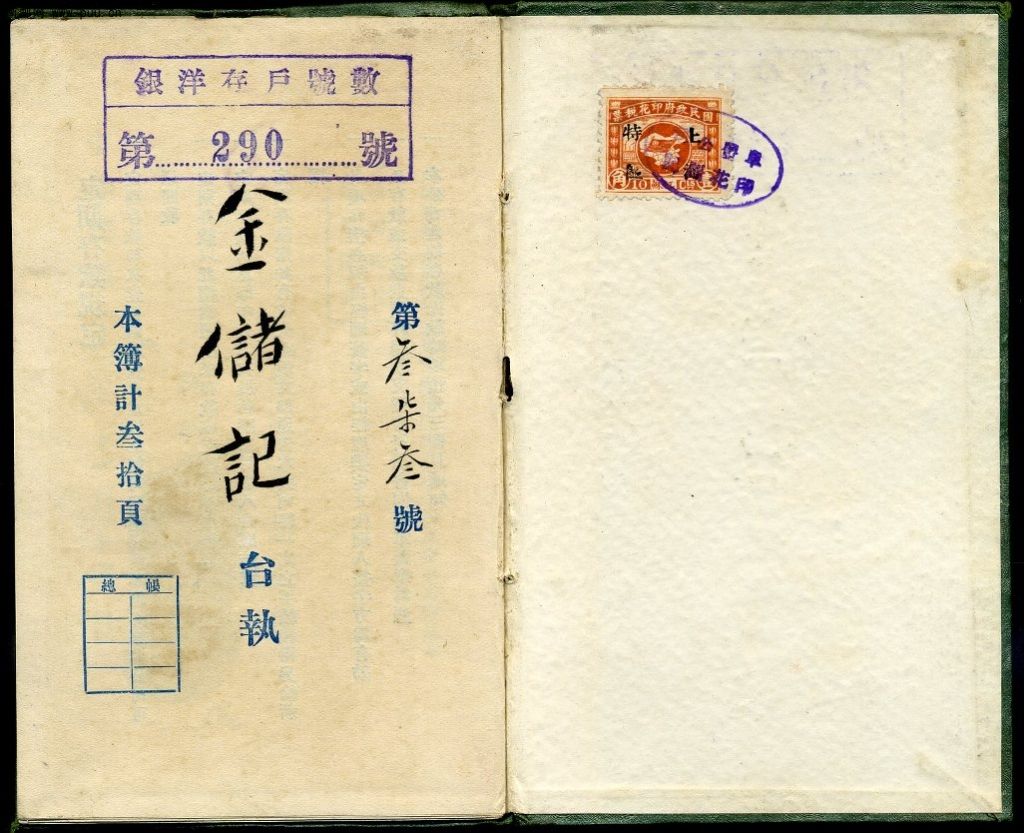 數號戶存洋銀
第 290 號
第叁柒叁號
金儲記
台執
本簿計叁拾頁
總 帳
國民政府印花稅票
特 上
角 10 CTS
花印